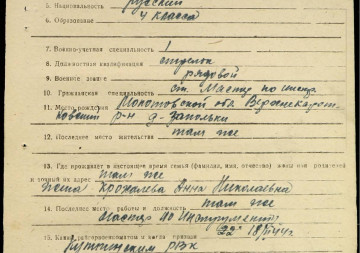 5. Национальность русский
6. Образование 4 класса
7. Военно-учетная специальность 1
8. Должностная квалификация стрелок
9. Военное звание рядовой
10. Гражданская специальность ст. Мастер по инстр.
11. Место рождения Молотовской обл.
р-н д.
12. Последнее место жительства там же
13. Где проживает в настоящее время семья (фамилия, имя, отчество) жены или родителей
и точный их адрес там же
жена Крохалева Анна Николаевна
14. Последнее место работы и должность там же
Мастер по инструменту
15. Каким райгорвоенкоматом и когда призван 18/
РВК